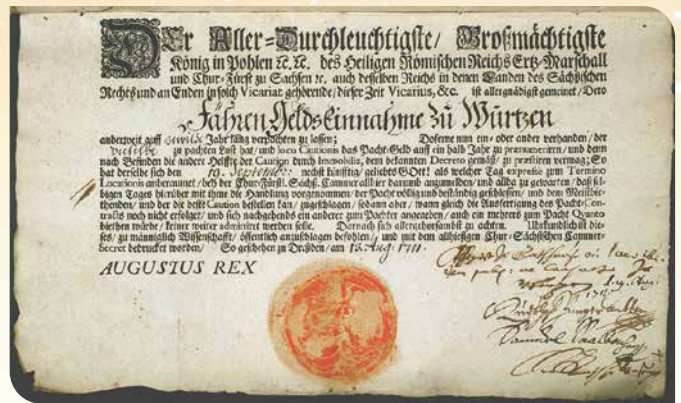 DEr Aller-Durchleuchtigste/ Großmächtigste
König in Pohlen ꝛc. ꝛc. des Heiligen Römischen Reichs Ertz-Marschall
und Chur-Fürst zu Sachsen ꝛc. auch desselben Reichs in denen Landen des Sächsischen
Rechts und an Enden in solch Vicariat gehörende/ dieser Zeit Vicarius, &c. ist allergnädigst gemeinet/ Dero
Fähren Gelds Einnahme zu Wurtzen
anderweit auff Jahr lang verpachten zu lassen; Dofferne nun ein- oder ander verhanden/ der
Dieselbe zu pachten Lust hat/ und loco Cautionis das Pacht-Geld auff ein halb Jahr zu prænumeriren/ und denn
nach Befinden die andere Helffte der Caution durch Immobilia, dem bekannten Decreto gemäß/ zu præstiren vermag; So
hat derselbe sich den 19. September: nechst künfftig/ geliebts Gott! als welcher Tag expresse zum Termino
Locationis anberaumet/ bey der Chur-Fürstl. Sächß. Cammer allhier darum anzumelden/ und allda zu gewarten/ daß sel-
bigen Tages hierüber mit ihme die Handlung vorgenommen/ der Pacht völlig und beständig geschlossen/ und dem Meistbie-
thenden/ und der die beste Caution bestellen kan/ zugeschlagen/ sodann aber/ wann gleich die Ausfertigung des Pacht-Con-
tracts noch nicht erfolget/ und sich nachgehends ein anderer zum Pachter angeben/ auch ein mehrers zum Pacht Qvanto
biethen würde/ keiner weiter admittiret werden solle. Darnach sich allergehorsambst zu achten. Uhrkundlich ist die-
ses/ zu männiglich Wissenschafft/ öffentlich anzuschlagen befohlen/ und mit dem allhiesigen Chur-Sächsischen Cammer-
Secret bedrucket worden/ So geschehen zu Dreßden/ am 12. Aug. 1711.
AUGUSTUS REX